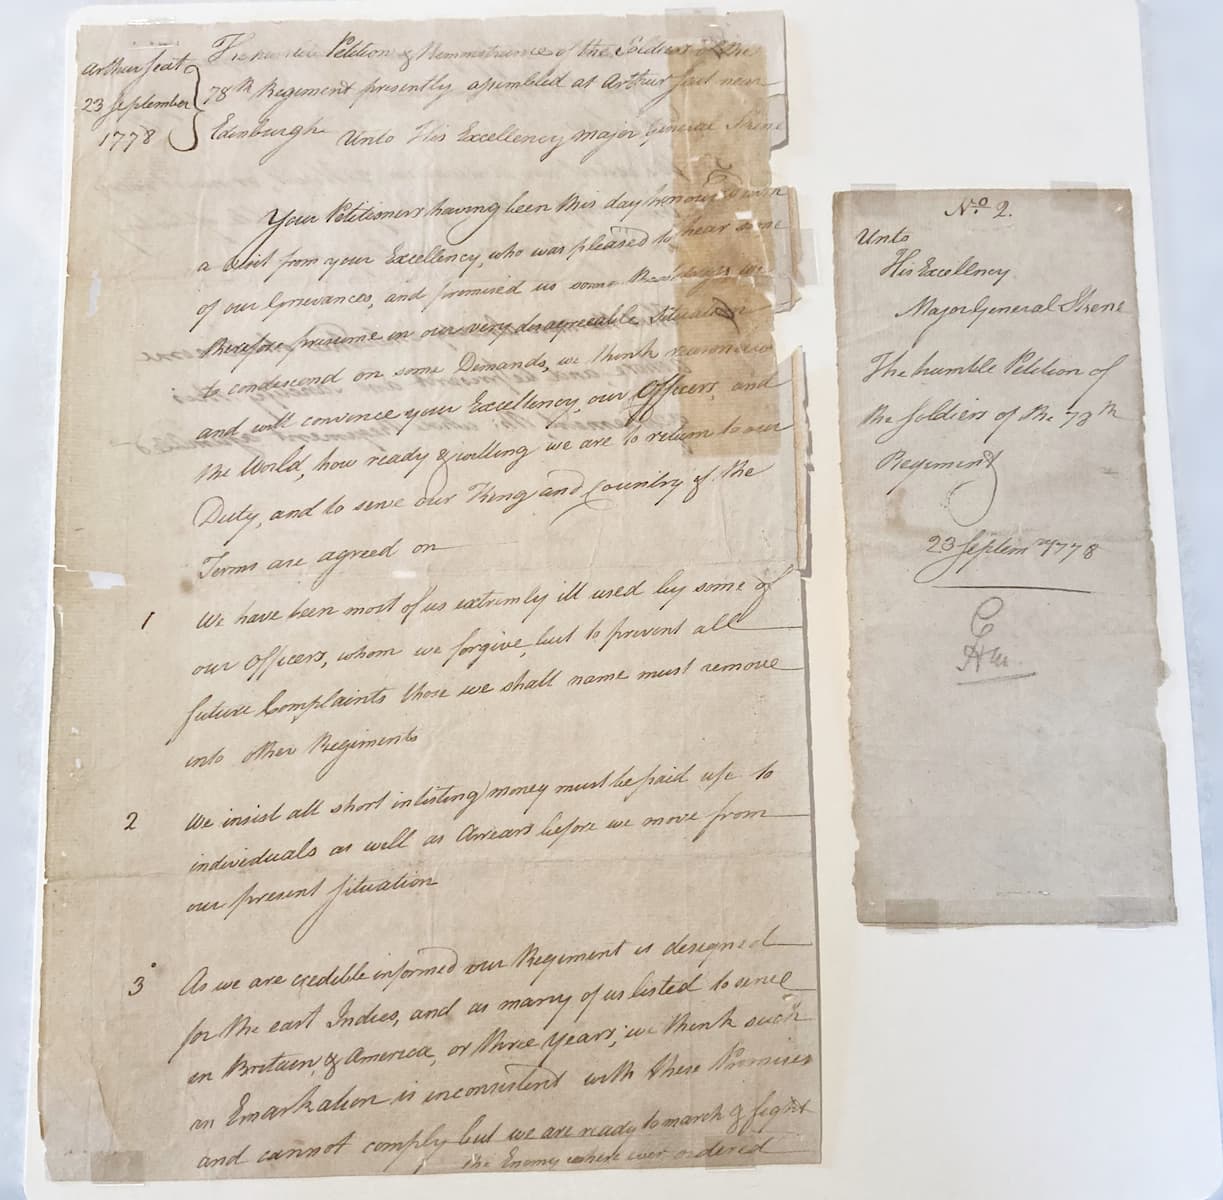 Arthur Seat
23 September
1778
The humble Petition & Remonstrance of the Soldiers of the
78th Regiment presently assembled at Arthur Seat near
Edinburgh Unto His Excellency Major General Skene
Your Petitioners having been this day honour'd with
a Visit from your Excellency, who was pleased to hear some
of our Grievances, and promised us some Redress, We
therefore presume in our very disagreeable Situation
to condescend on some Demands, we think reasonable
and will convince your Excellency, our Officers, and
the World, how ready & willing we are to return to our
Duty, and to serve our King and Country if the
Terms are agreed on
1 We have been most of us extremly ill used by some of
our Officers, whom we forgive, but to prevent all
future Complaints those we shall name must remove
into other Regiments
2 We insist all short inlisting money must be paid up to
individuals as well as Arrears before we move from
our present Situation
3° As we are credible informed our Regiment is designed
for the east Indies, and as many of us listed to serve
in Britain, & America, or three Years, we think such
an Emarkation is inconsistent with these Promises
and cannot comply but we are ready to march & fight
the Enemy where ever ordered
No. 2.
Unto
His Excellency
Major General Skene
The humble Petition of
the Soldiers of the 78th
Regiment
23 Septemr 1778